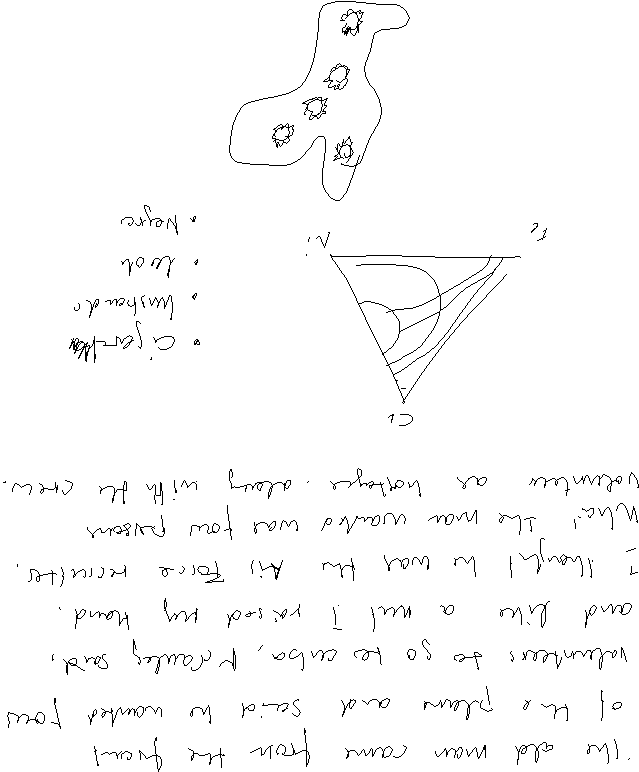 The old man came from the front
of the plane and said he wanted four
volunteers to go to cuba, McCauley said,
and like a nut I raised my hand.
I thought he was the Air Force recruiter.
What the man wanted was four persons
volunteer as hostages. along with the crew.
Cu
• husbands
• look
• Negro
Fe
Ni